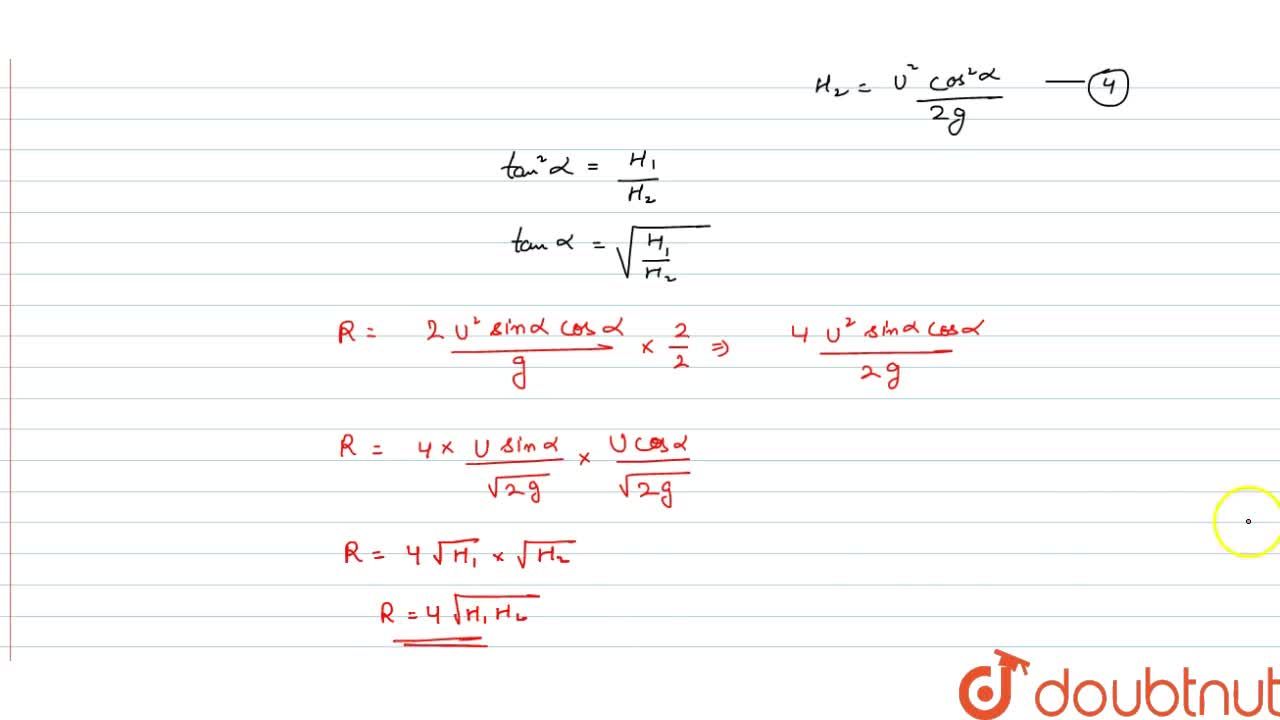 H₂ = U² cos²α / 2g — ④
tan²α = H₁ / H₂
tanα = √(H₁ / H₂)
R = 2 U² sinα cosα / g × 2/2 ⇒ 4 U² sinα cosα / 2g
R = 4 × U sinα / √2g × U cosα / √2g
R = 4 √H₁ × √H₂
R = 4 √H₁ H₂
doubtnut